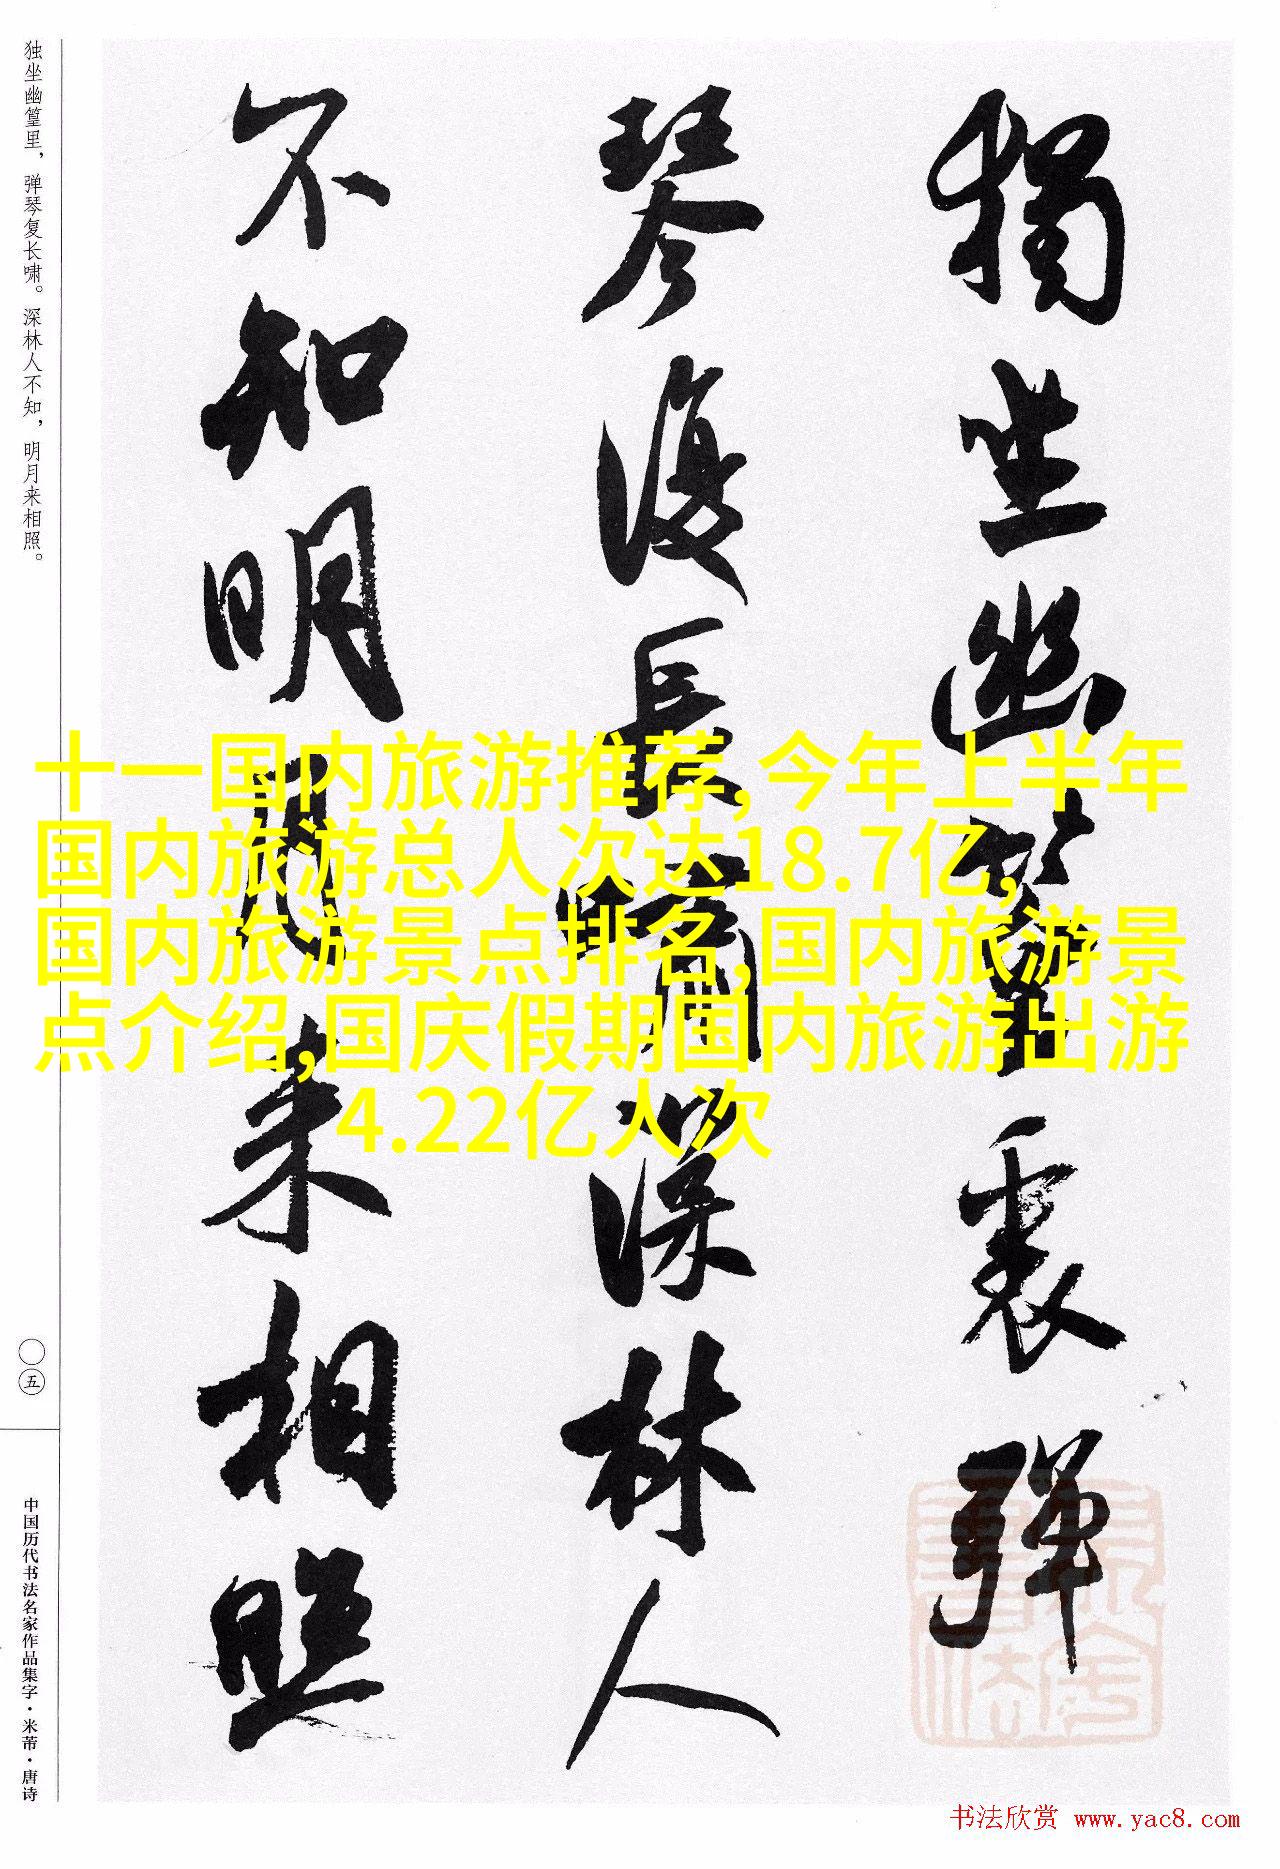 獨坐幽篁裏彈
琴復長嘯深林人
不知明月来相照
独坐幽篁里，弹琴复长啸。深林人不知，明月来相照。
〇五
中国历代书法名家作品集字·米芾·唐诗
十一国内旅游推荐,今年上半年
国内旅游总人次达18.7亿,
国内旅游景点排名,国内旅游景
点介绍,国庆假期国内旅游出游
4.22亿人次
书法欣赏 www.yac8.com